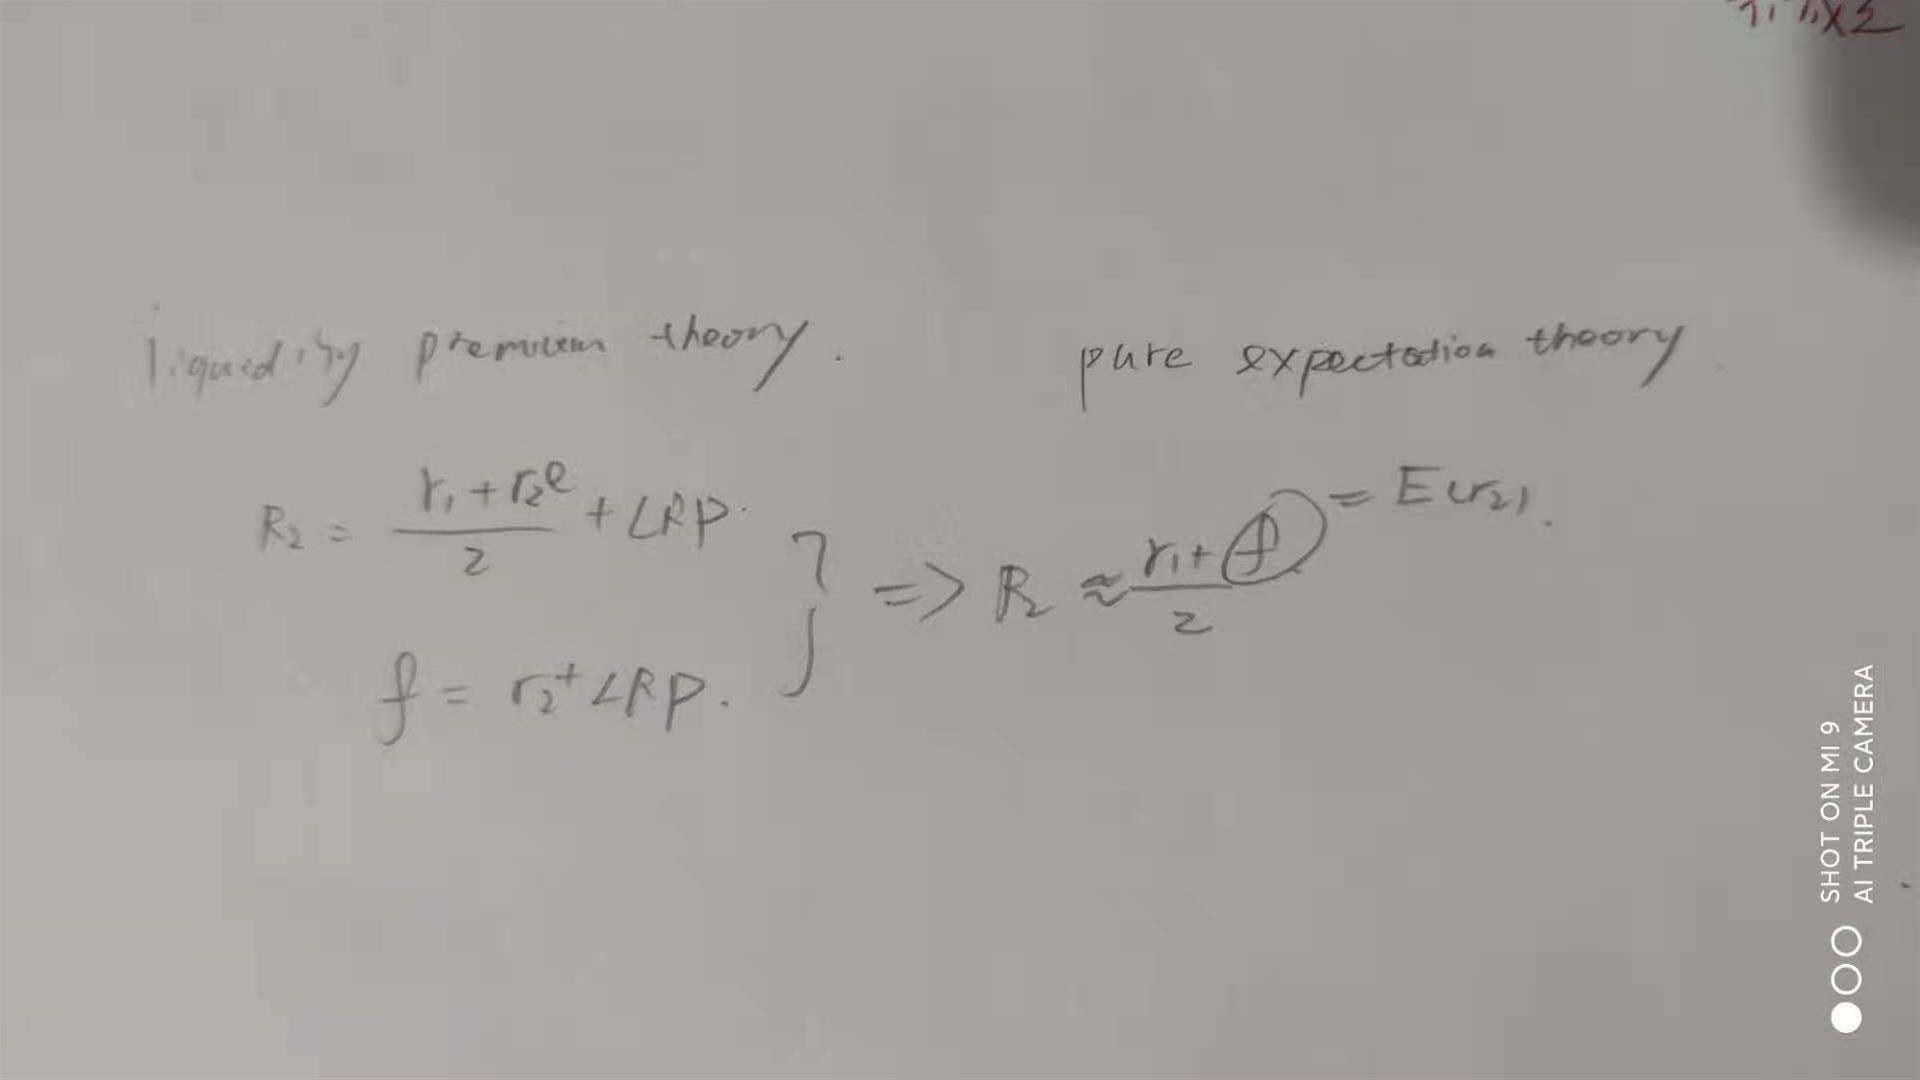 liquidity premium theory.
pure expectation theory
R₂ = (r₁ + r₂ᵉ)/2 + LRP.
f = r₂ + LRP.
=> R₂ ≈ (r₁ + f)/2
= E(r₂).
SHOT ON MI 9
AI TRIPLE CAMERA